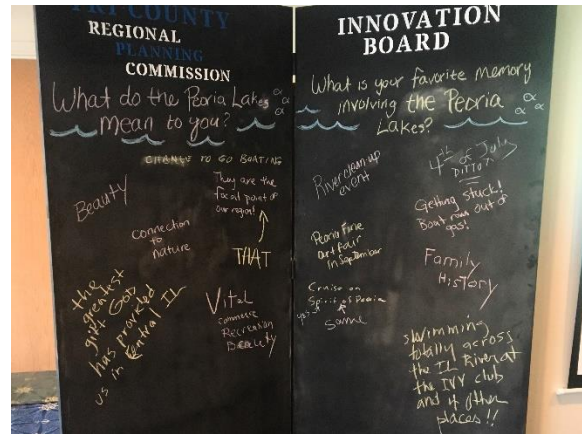 TRI COUNTY
REGIONAL
PLANNING
COMMISSION
What do the Peoria Lakes
mean to you?
CHANCE TO GO BOATING
Beauty
They are the
focal point of
our region!
Connection
to
nature
THAT
the
greatest
gift God
has provided
us in Central IL
Vital
commerce
Recreation
Beauty
INNOVATION
BOARD
What is your favorite memory
involving the Peoria
Lakes?
River clean-up
event
4th of July
DITTO!
Getting stuck!
Boat ran out of
gas!
Peoria Fine
art fair
in September
Family
History
Cruise on
Spirit of Peoria
yes
same
swimming
totally across
the IL River at
the IVY club
and 4 other
places!!